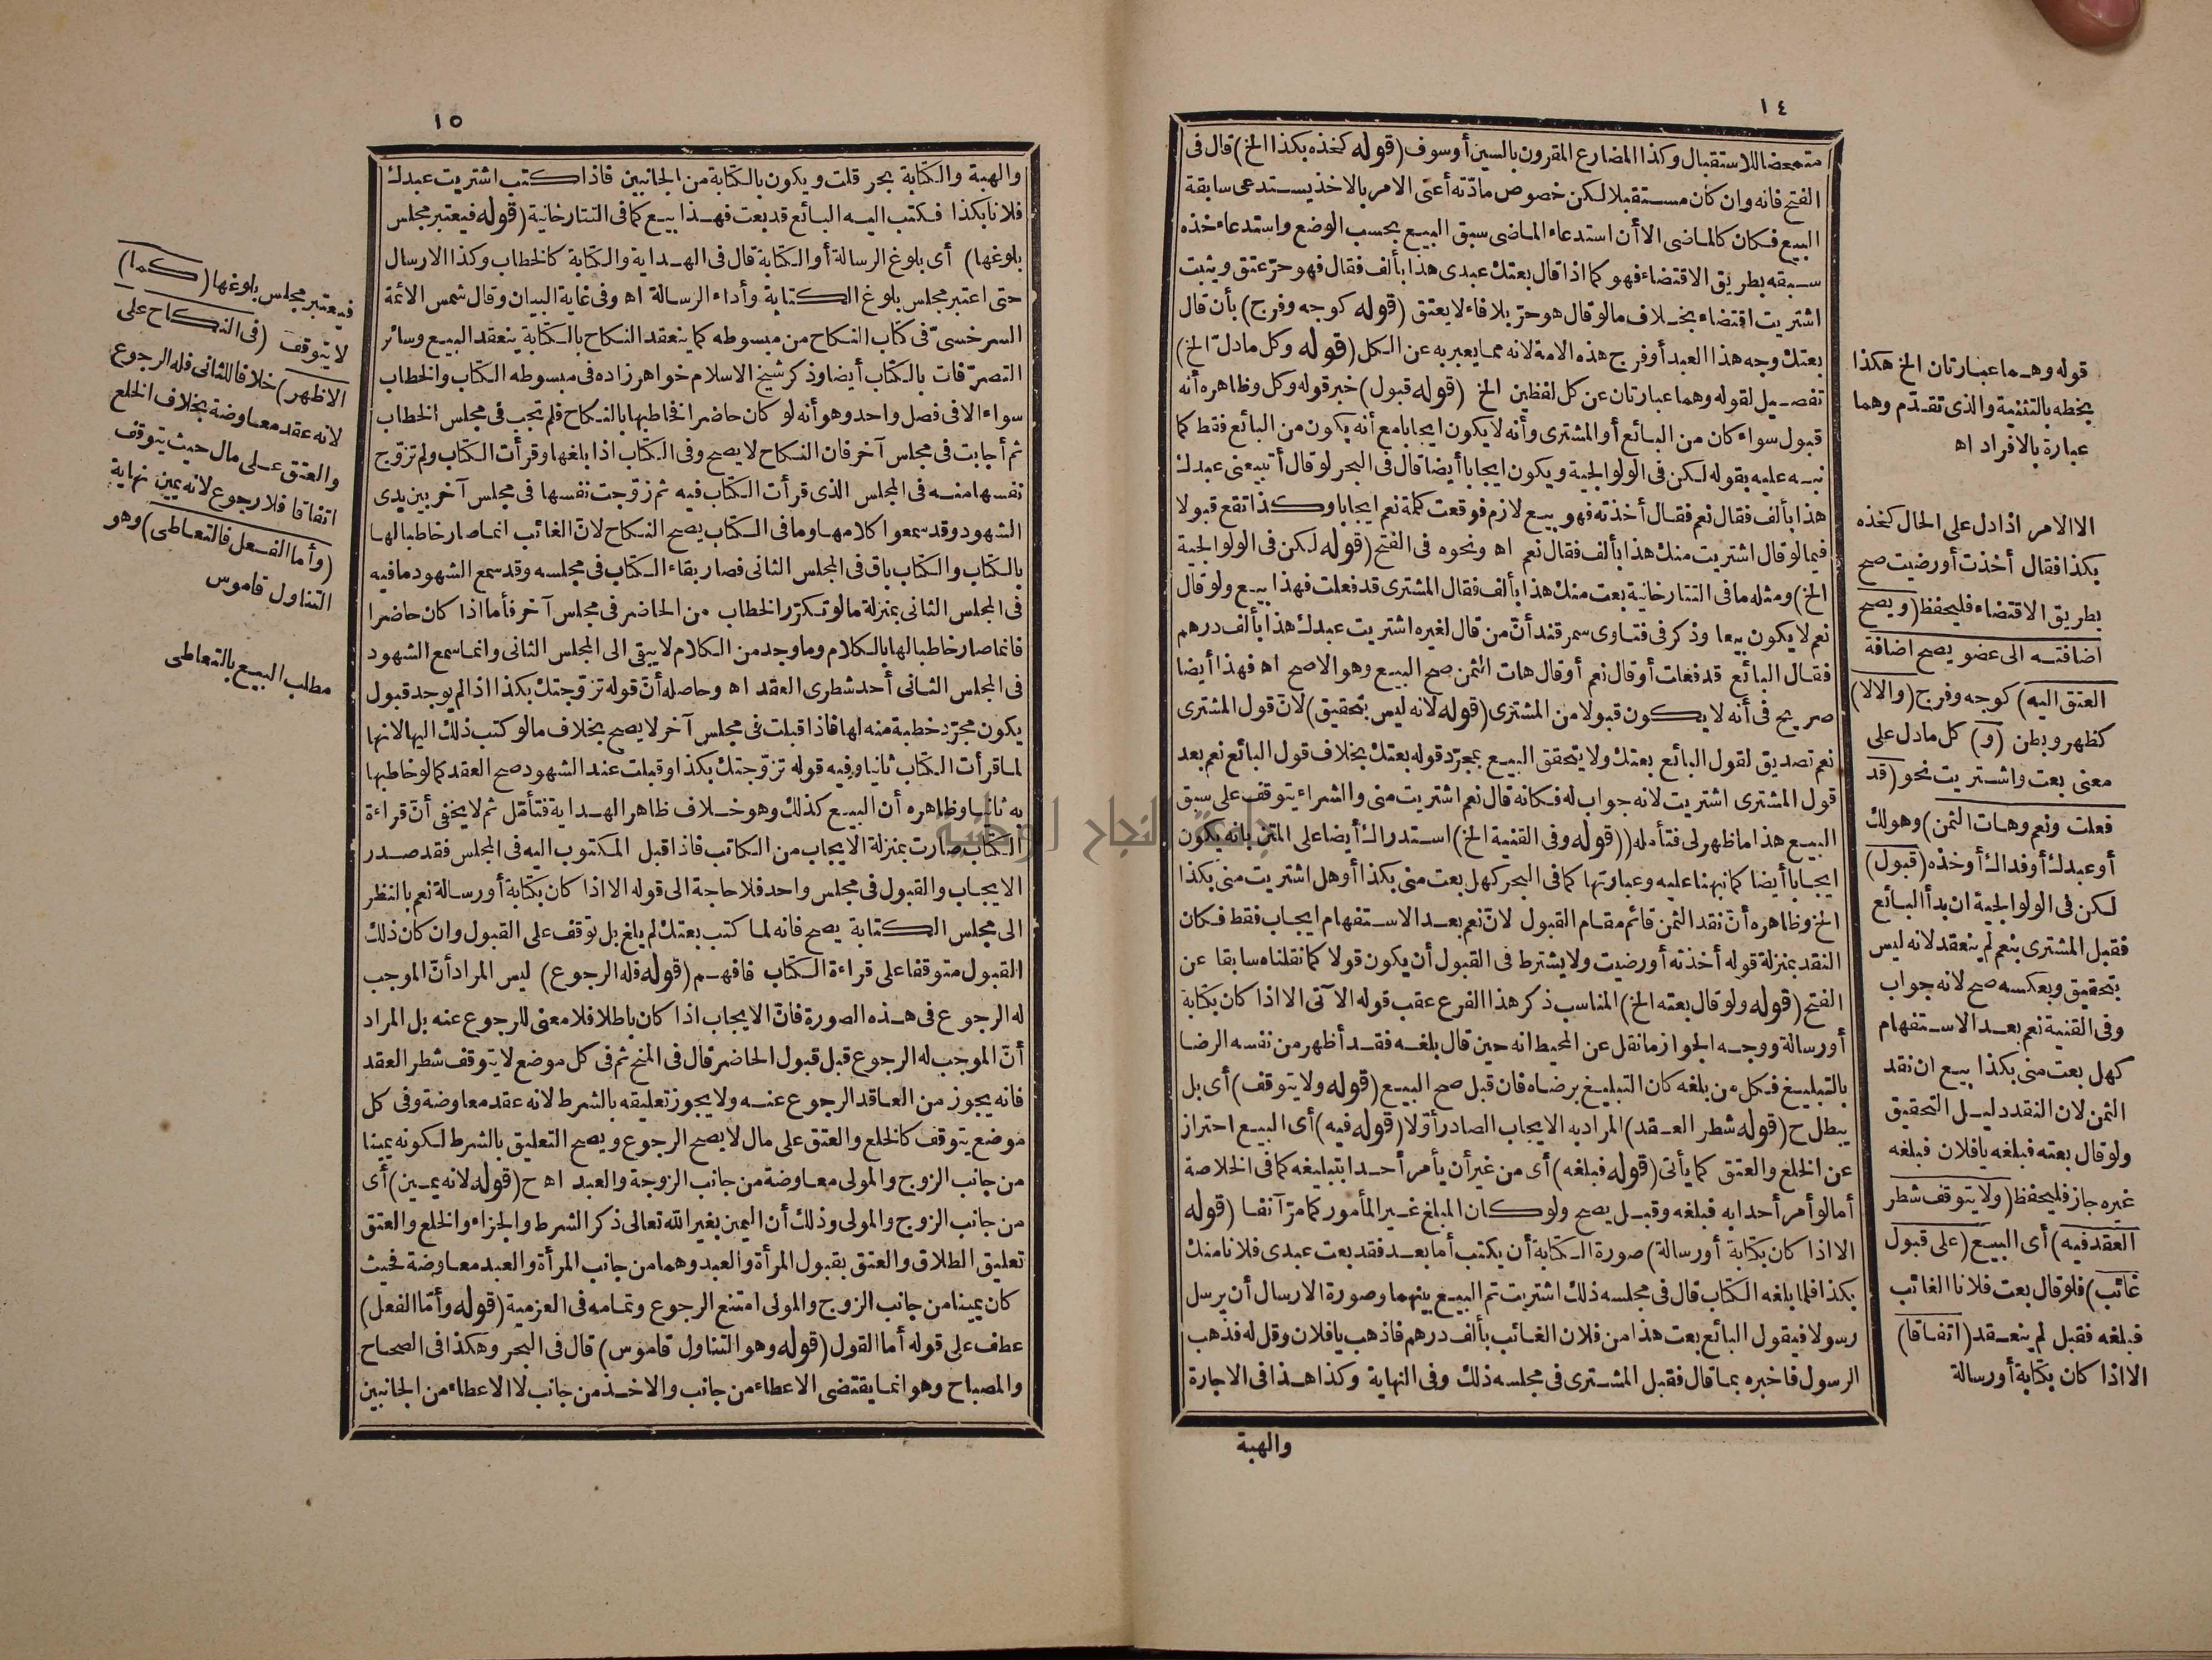 ١٤
متمحضا للاستقبال وكذا المضارع المقرون بالسين أو سوف (قوله كخذه بكذا الخ) قال فى
الفتح فانه وان كان مستقبلا لكن خصوص مادّته أعنى الامر بالاخذ يستدعى سابقة
البيع فكان كالماضى الا أن استدعاء الماضى سبق البيع بحسب الوضع واستدعاء خذه
سبقه بطريق الاقتضاء فهو كما اذا قال بعتك عبدى هذا بألف فقال فهو حرّ عتق ويثبت
اشتريت اقتضاء بخلاف ما لو قال هو حرّ بلا فاء لا يعتق (قوله كوجه وفرج) بأن قال
بعتك وجه هذا العبد أو فرج هذه الامة لانه مما يعبر به عن الكل (قوله وكل ما دلّ الخ)
تفصيل لقوله وهما عبارتان عن كل لفظين الخ (قوله قبول) خبر قوله وكل وظاهره أنه
قبول سواء كان من البائع أو المشترى وأنه لا يكون ايجابا مع أنه يكون من البائع فقط كما
نبه عليه بقوله لكن فى الولوالجية ويكون ايجابا أيضا قال فى البحر لو قال أتبيعنى عبدك
هذا بألف فقال نعم فقال أخذته فهو بيع لازم فوقعت كلمة نعم ايجابا وكذا تقع قبولا
فيما لو قال اشتريت منك هذا بألف فقال نعم اه ونحوه فى الفتح (قوله لكن فى الولوالجية
الخ) ومثله ما فى التتارخانية بعت منك هذا بألف فقال المشترى قد فعلت فهذا بيع ولو قال
نعم لا يكون بيعا وذكر فى فتاوى سمرقند أنّ من قال لغيره اشتريت عبدك هذا بألف درهم
فقال البائع قد فعلت أو قال نعم أو قال هات الثمن صح البيع وهو الاصح اه فهذا أيضا
صريح فى أنه لا يكون قبولا من المشترى (قوله لانه ليس بتحقيق) لانّ قول المشترى
نعم تصديق لقول البائع بعتك ولا يتحقق البيع بمجرّد قوله بعتك بخلاف قول البائع نعم بعد
قول المشترى اشتريت لانه جواب له فكانه قال نعم اشتريت منى والشراء يتوقف على سبق
البيع هذا ما ظهر لى فتأمله ((قوله وفى القنية الخ) استدراك أيضا على المتن بانه يكون
ايجابا أيضا كما نبهنا عليه وعبارتها كما فى البحر كهل بعت منى بكذا أو هل اشتريت منى بكذا
الخ وظاهره أنّ نقد الثمن قائم مقام القبول لانّ نعم بعد الاستفهام ايجاب فقط فكان
النقد بمنزلة قوله أخذته أو رضيت ولا يشترط فى القبول أن يكون قولا كما نقلناه سابقا عن
الفتح (قوله ولو قال بعته الخ) المناسب ذكر هذا الفرع عقب قوله الآتى الا اذا كان بكتابة
أو رسالة ووجه الجواز ما نقل عن المحيط انه حين قال بلغه فقد أظهر من نفسه الرضا
بالتبليغ فكل من بلغه كان التبليغ برضاه فان قبل صح البيع (قوله ولا يتوقف) أى بل
يبطل ح (قوله شطر العقد) المراد به الايجاب الصادر أوّلا (قوله فيه) أى البيع احتراز
عن الخلع والعتق كما يأتى (قوله فبلغه) أى من غير أن يأمر أحدا بتبليغه كما فى الخلاصة
أما لو أمر أحدا به فبلغه وقبل يصح ولو كان المبلغ غير المأمور كما مرّ آنفا (قوله
الا اذا كان بكتابة أو رسالة) صورة الكتابة أن يكتب أما بعد فقد بعت عبدى فلانا منك
بكذا فلما بلغه الكتاب قال فى مجلسه ذلك اشتريت تم البيع بينهما وصورة الارسال أن يرسل
رسولا فيقول البائع بعت هذا من فلان الغائب بألف درهم فاذهب يا فلان وقل له فذهب
الرسول فاخبره بما قال فقبل المشترى فى مجلسه ذلك وفى النهاية وكذا هذا فى الاجارة
والهبة
قوله وهما عبارتان الخ هكذا
بخطه بالتثنية والذى تقدّم وهما
عبارة بالافراد اه
الا الامر اذا دل على الحال كخذه
بكذا فقال أخذت أو رضيت صح
بطريق الاقتضاء فليحفظ (ويصح
اضافته الى عضو يصح اضافة
العتق اليه) كوجه وفرج (والا لا)
كظهر وبطن (و) كل ما دل على
معنى بعت واشتريت نحو (قد
فعلت ونعم وهات الثمن) وهو لك
أو عبدك أو فداك أو خذه (قبول)
لكن فى الولوالجية ان بدأ البائع
فقبل المشترى بنعم لم ينعقد لانه ليس
بتحقيق وبعكسه صح لانه جواب
وفى القنية نعم بعد الاستفهام
كهل بعت منى بكذا بيع ان نقد
الثمن لان النقد دليل التحقيق
ولو قال بعته فبلغه يا فلان فبلغه
غيره جاز فليحفظ (ولا يتوقف شطر
العقد فيه) أى البيع (على قبول
غائب) فلو قال بعت فلانا الغائب
فبلغه فقبل لم ينعقد (اتفاقا)
الا اذا كان بكتابة أو رسالة
١٥
والهبة والكتابة بحر قلت ويكون بالكتابة من الجانبين فاذا كتب اشتريت عبدك
فلانا بكذا فكتب اليه البائع قد بعت فهذا بيع كما فى التتارخانية (قوله فيعتبر مجلس
بلوغها) أى بلوغ الرسالة أو الكتابة قال فى الهداية والكتابة كالخطاب وكذا الارسال
حتى اعتبر مجلس بلوغ الكتابة وأداء الرسالة اه وفى غاية البيان وقال شمس الائمة
السرخسىّ فى كتاب النكاح من مبسوطه كما ينعقد النكاح بالكتابة ينعقد البيع وسائر
التصرّفات بالكتاب أيضا وذكر شيخ الاسلام خواهر زاده فى مبسوطه الكتاب والخطاب
سواء الا فى فصل واحد وهو أنه لو كان حاضرا فخاطبها بالنكاح فلم تجب فى مجلس الخطاب
ثم أجابت فى مجلس آخر فان النكاح لا يصح وفى الكتاب اذا بلغها وقرأت الكتاب ولم تزوّج
نفسها منه فى المجلس الذى قرأت الكتاب فيه ثم زوّجت نفسها فى مجلس آخر بين يدى
الشهود وقد سمعوا كلامها وما فى الكتاب يصح النكاح لانّ الغائب انما صار خاطبا لها
بالكتاب والكتاب باق فى المجلس الثانى فصار بقاء الكتاب فى مجلسه وقد سمع الشهود ما فيه
فى المجلس الثانى بمنزلة ما لو تكرّر الخطاب من الحاضر فى مجلس آخر فأما اذا كان حاضرا
فانما صار خاطبا لها بالكلام وما وجد من الكلام لا يبقى الى المجلس الثانى وانما سمع الشهود
فى المجلس الثانى أحد شطرى العقد اه وحاصله أنّ قوله تزوّجتك بكذا اذا لم يوجد قبول
يكون مجرّد خطبة منه لها فاذا قبلت فى مجلس آخر لا يصح بخلاف ما لو كتب ذلك اليها لانها
لما قرأت الكتاب ثانيا وفيه قوله تزوّجتك بكذا وقبلت عند الشهود صح العقد كما لو خاطبها
به ثانيا وظاهره أن البيع كذلك وهو خلاف ظاهر الهداية فتأمّل ثم لا يخفى أنّ قراءة
الكتاب صارت بمنزلة الايجاب من الكاتب فاذا قبل المكتوب اليه فى المجلس فقد صدر
الايجاب والقبول فى مجلس واحد فلا حاجة الى قوله الا اذا كان بكتابة أو رسالة نعم بالنظر
الى مجلس الكتابة يصح فانه لما كتب بعتك لم يلغ بل توقف على القبول وان كان ذلك
القبول متوقفا على قراءة الكتاب فافهم (قوله فله الرجوع) ليس المراد أنّ الموجب
له الرجوع فى هذه الصورة فانّ الايجاب اذا كان باطلا فلا معنى للرجوع عنه بل المراد
أنّ الموجب له الرجوع قبل قبول الحاضر قال فى المنح ثم فى كل موضع لا يتوقف شطر العقد
فانه يجوز من العاقد الرجوع عنه ولا يجوز تعليقه بالشرط لانه عقد معاوضة وفى كل
موضع يتوقف كالخلع والعتق على مال لا يصح الرجوع ويصح التعليق بالشرط لكونه يمينا
من جانب الزوج والمولى معاوضة من جانب الزوجة والعبد اه ح (قوله لانه يمين) أى
من جانب الزوج والمولى وذلك أن اليمين بغير الله تعالى ذكر الشرط والجزاء والخلع والعتق
تعليق الطلاق والعتق بقبول المرأة والعبد وهما من جانب المرأة والعبد معاوضة فحيث
كان يمينا من جانب الزوج والمولى امتنع الرجوع وتمامه فى العزمية (قوله وأمّا الفعل)
عطف على قوله أما القول (قوله وهو التناول قاموس) قال فى البحر وهكذا فى الصحاح
والمصباح وهو انما يقتضى الاعطاء من جانب والاخذ من جانب لا الاعطاء من الجانبين
فيعتبر مجلس بلوغها (كما)
لا يتوقف (فى النكاح على
الاظهر) خلافا للثانى فله الرجوع
لانه عقد معاوضة بخلاف الخلع
والعتق على مال حيث يتوقف
اتفاقا فلا رجوع لانه يمين نهاية
(وأما الفعل فالتعاطى) وهو
التناول قاموس
مطلب البيع بالتعاطى
جامعة النجاح الوطنية